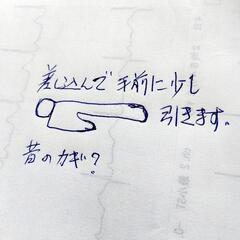 差し込んで手前に少し
引きます。
昔のカギ?